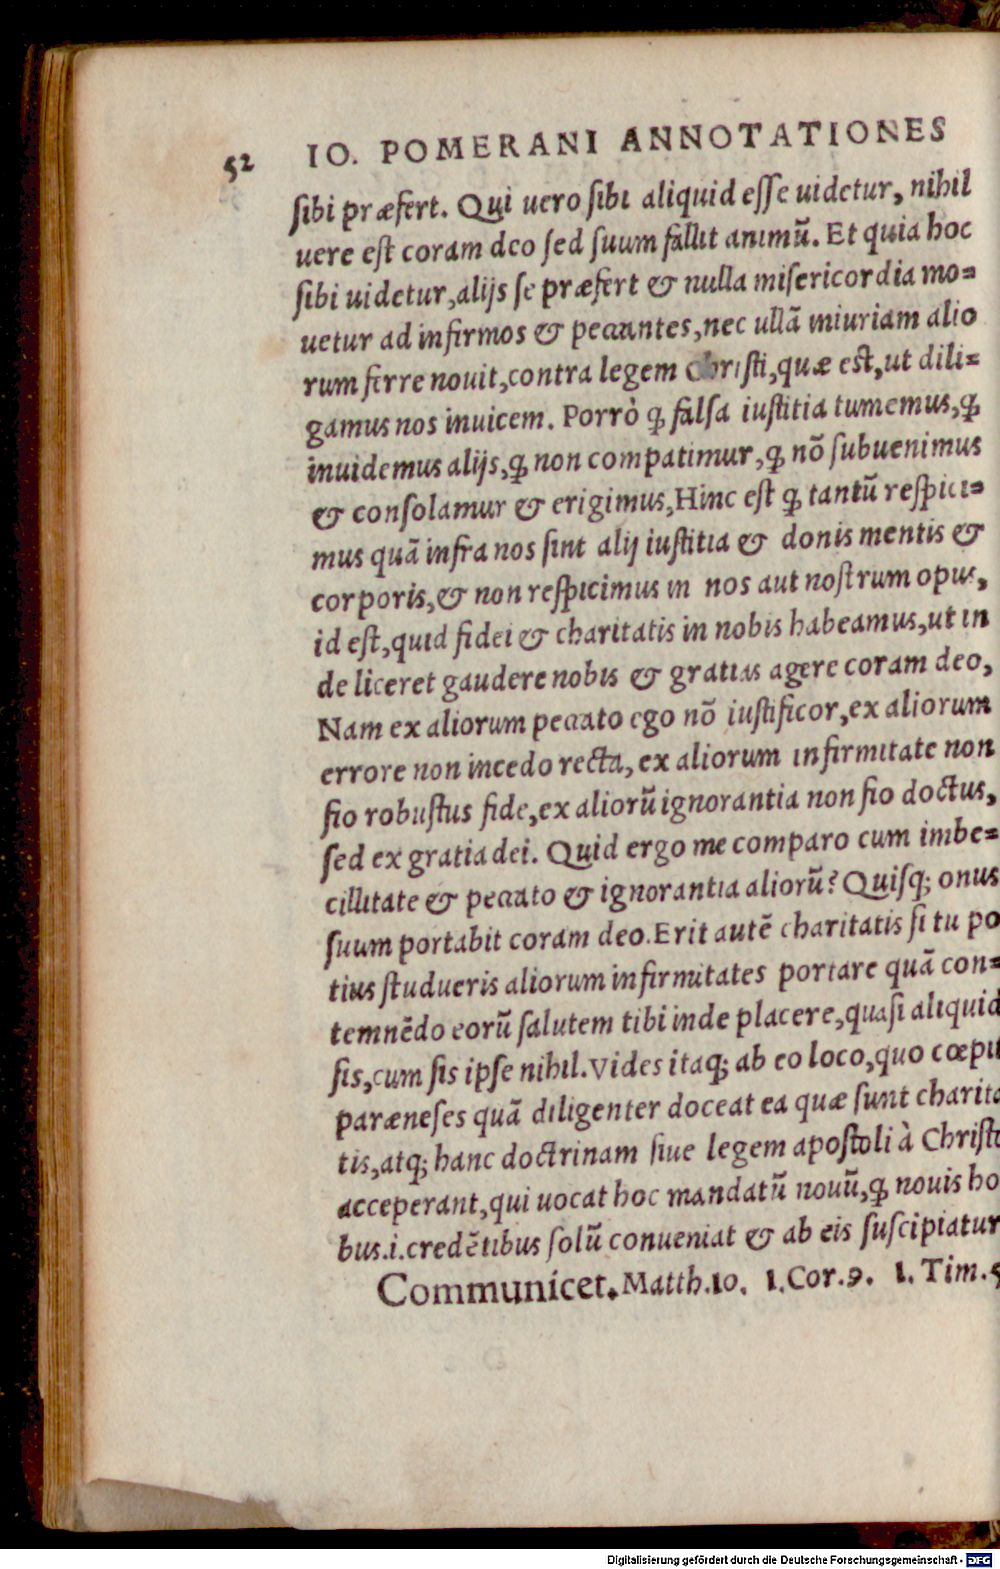 52 IO. POMERANI ANNOTATIONES
sibi præfert. Qui uero sibi aliquid esse uidetur, nihil
uere est coram deo sed suum fallit animũ. Et quia hoc
sibi uidetur, alijs se præfert & nulla misericordia mo=
uetur ad infirmos & peccantes, nec ullã iniuriam alio
rum ferre nouit, contra legem Christi, quæ est, ut dili=
gamus nos inuicem. Porrò ꝙ falsa iustitia tumemus, ꝙ
inuidemus alijs, ꝙ non compatimur, ꝙ nõ subuenimus
& consolamur & erigimus, Hinc est ꝙ tantũ respici=
mus quã infra nos sint alij iustitia & donis mentis &
corporis, & non respicimus in nos aut nostrum opus,
id est, quid fidei & charitatis in nobis habeamus, ut in
de liceret gaudere nobis & gratias agere coram deo,
Nam ex aliorum peccato ego nõ iustificor, ex aliorum
errore non incedo recta, ex aliorum infirmitate non
fio robustus fide, ex aliorũ ignorantia non fio doctus,
sed ex gratia dei. Quid ergo me comparo cum imbe=
cillitate & peccato & ignorantia aliorũ? Quisq; onus
suum portabit coram deo. Erit autẽ charitatis si tu po
tius studueris aliorum infirmitates portare quã con=
temnẽdo eorũ salutem tibi inde placere, quasi aliquid
sis, cum sis ipse nihil. Vides itaq; ab eo loco, quo cœpit
paræneses quã diligenter doceat ea quæ sunt charita
tis, atq; hanc doctrinam siue legem apostoli à Christo
acceperant, qui uocat hoc mandatũ nouũ, ꝙ nouis ho
bus .i. credẽtibus solũ conueniat & ab eis suscipiatur
Communicet. Matth. 10. 1. Cor. 9. 1. Tim. 5
Digitalisierung gefördert durch die Deutsche Forschungsgemeinschaft - DFG